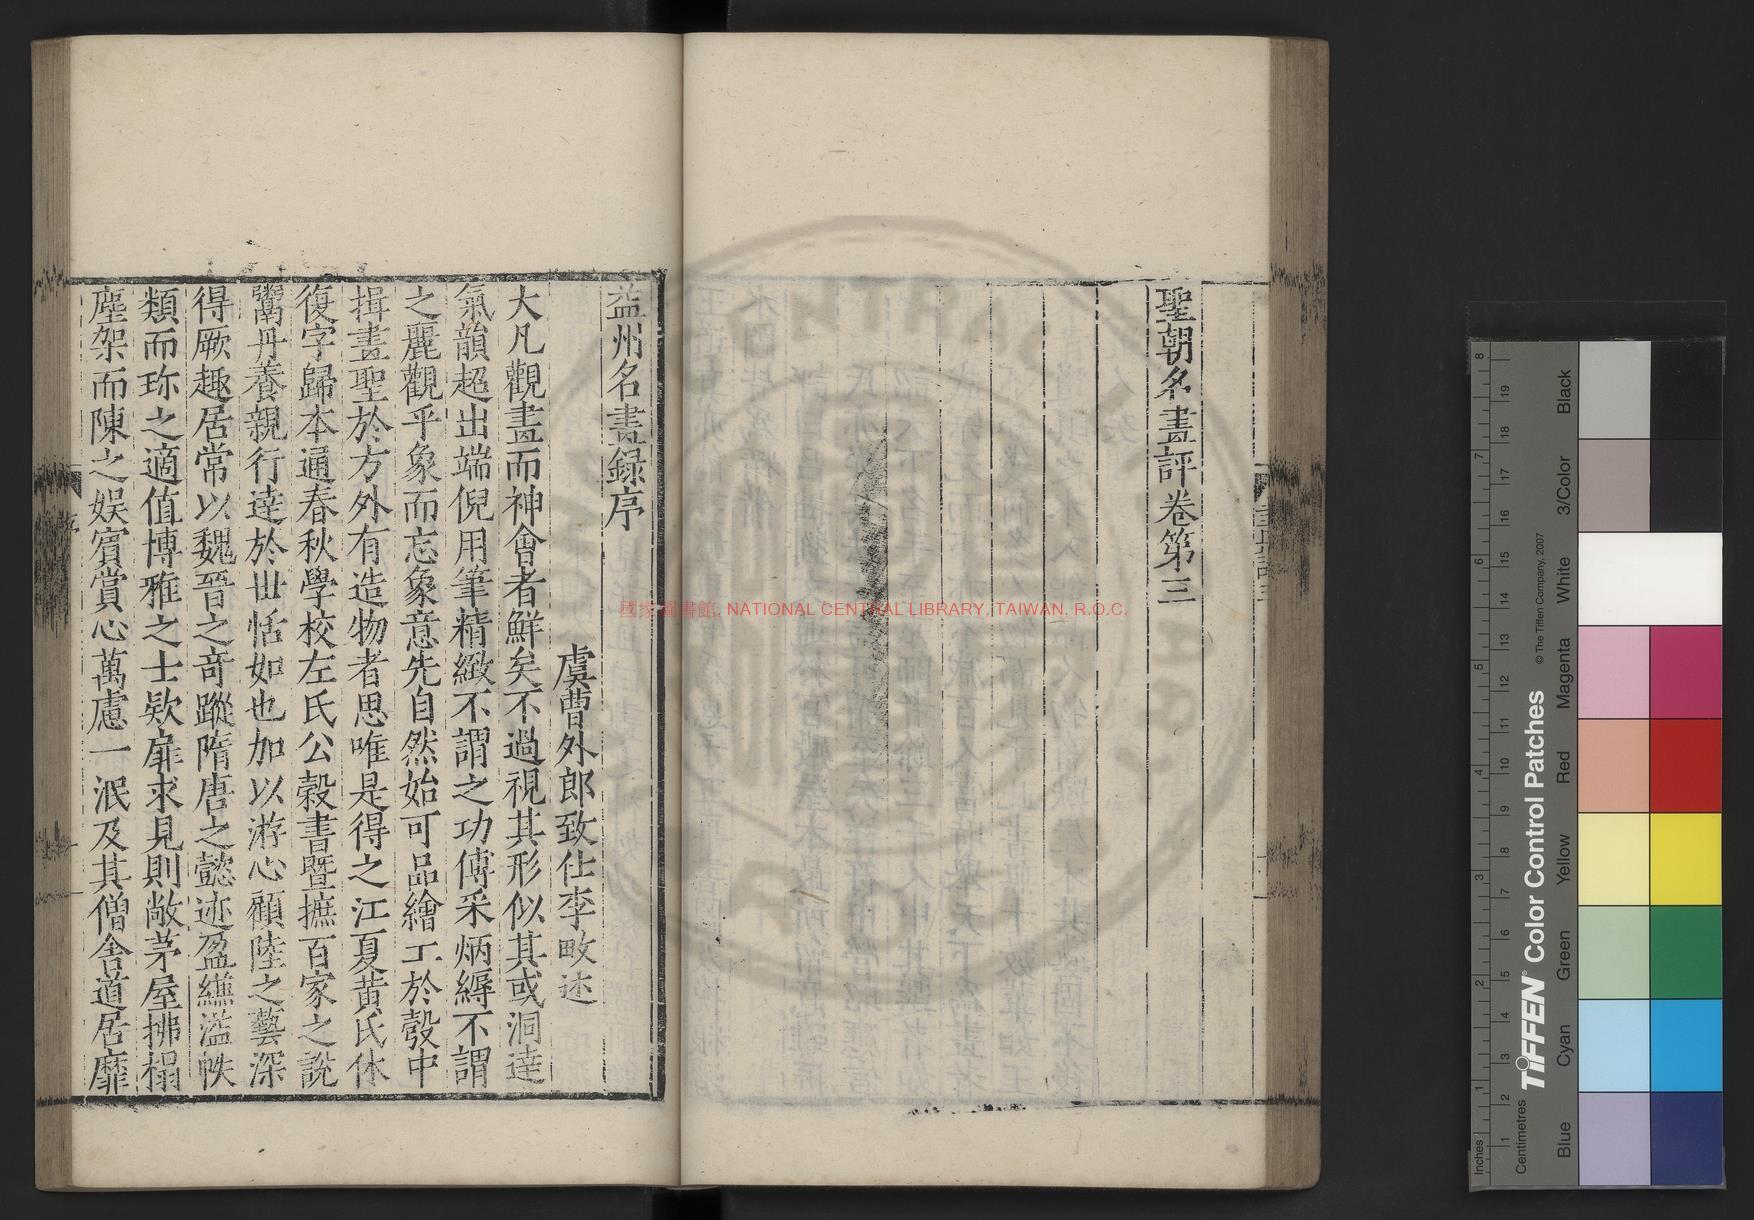 聖朝名畫評卷第三
益州名畫録序
虞曹外郎致仕李畋述
大凡觀畫而神會者鮮矣不過視其形似其或洞達
氣韻超出端倪用筆精緻不謂之功傅采炳縟不謂
之麗觀乎象而忘象意先自然始可品繪工於彀中
揖畫聖於方外有造物者思唯是得之江夏黄氏休
復字歸本通春秋學校左氏公榖書暨摭百家之說
鬻丹養親行達於世恬如也加以游心顧陸之藝深
得厥趣居常以魏晉之竒蹤隋唐之懿迹盈縑溢帙
類而珎之適值博雅之士欵扉求見則敞茅屋拂榻
塵架而陳之娱賔賞心萬慮一泯及其僧舍道居靡
國家圖書館, NATIONAL CENTRAL LIBRARY, TAIWAN, R.O.C.
Inches
Centimetres
TIFFEN® Color Control Patches
© The Tiffen Company, 2007
Blue
Cyan
Green
Yellow
Red
Magenta
White
3/Color
Black